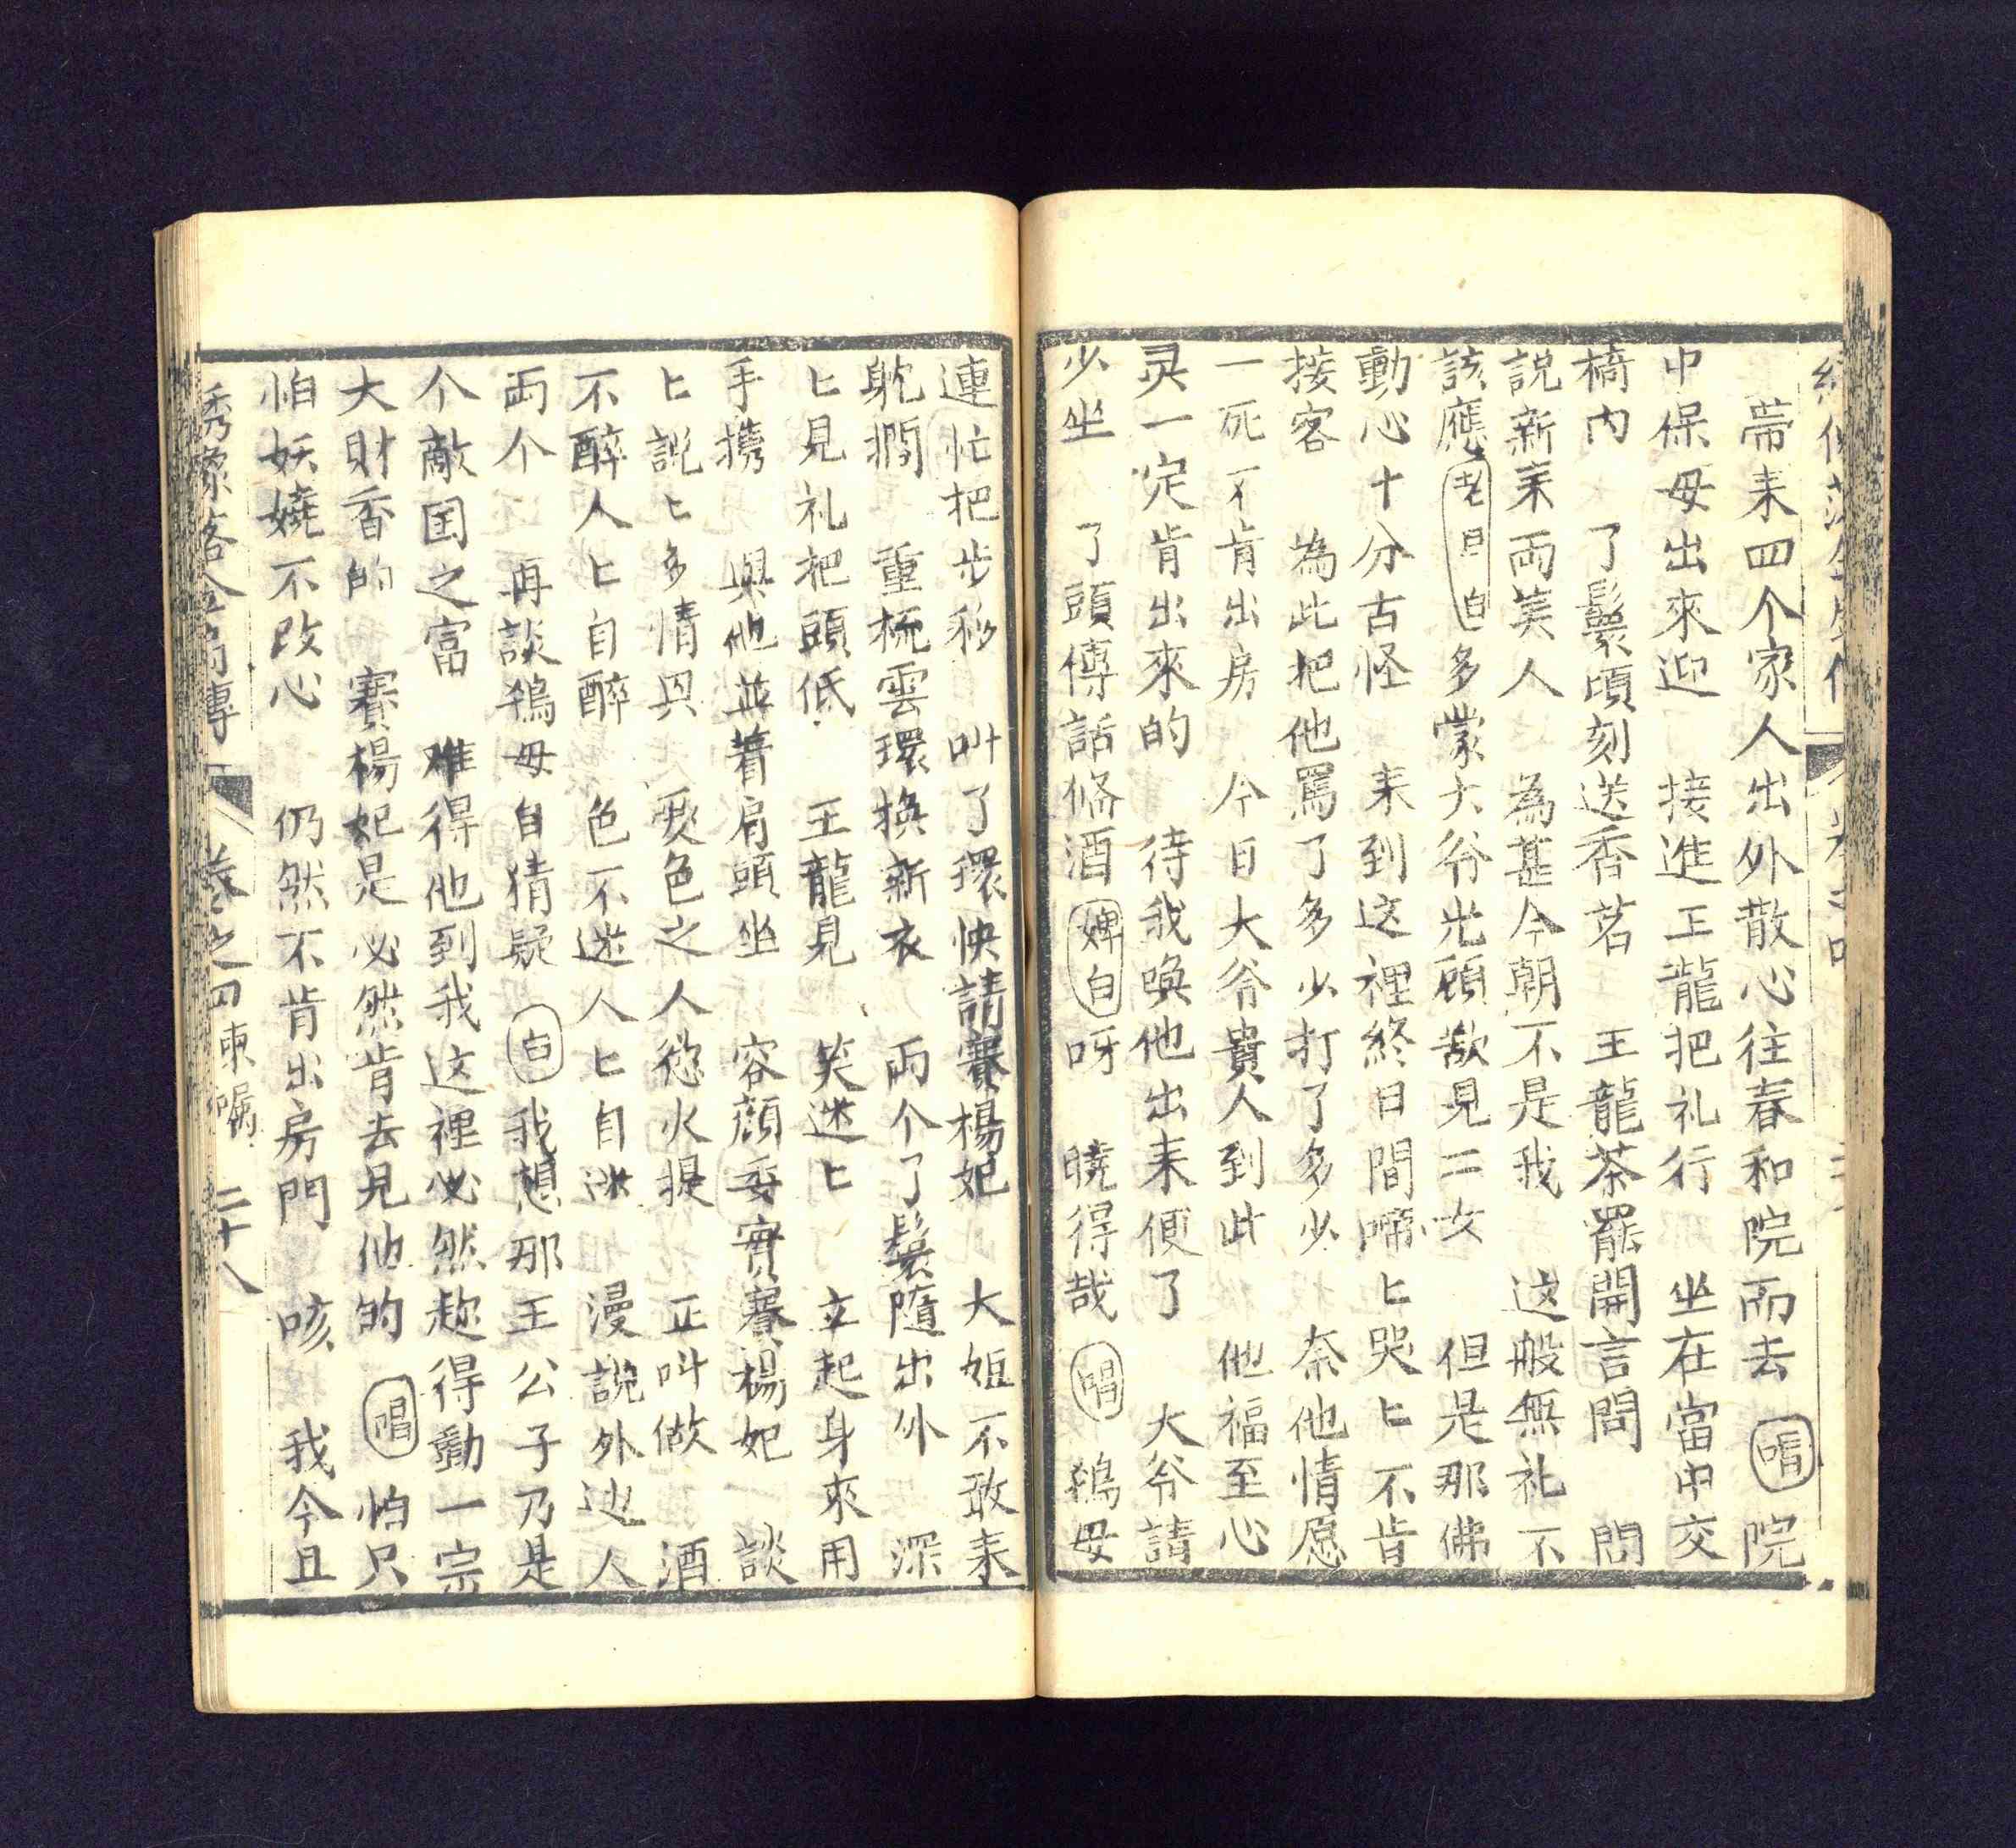 帶来四个家人出外散心往春和院而去 唱 院
中保母出來迎 接進王龍把礼行 坐在當中交
椅内 了鬟頃刻送香茗 王龍茶罷開言問 問
說新来両美人 為甚今朝不是我 这般無礼不
該應 老旦白 多蒙大爷光顧欲見二女 但是那佛
動心十分古怪 来到这裡終日間啼匕哭匕不肯
接客 為此把他罵了多少打了多少 奈他情愿
一死不肯出房 今日大爷貴人到此 他福至心
灵一定肯出來的 待我喚他出来便了 大爷請
少坐 了頭傳話俻酒 婢白 呀 曉得哉 唱 鴇母
連忙把步移 叫了環快請賽楊妃 大姐不敢来
躭擱 重梳雲環換新衣 両个了鬟隨出外 深
匕見礼把頭低 王龍見 笑迷匕 立起身來用
手携 與他並着肩頭坐 容顔委實賽楊妃 談
匕說匕多情興 愛色之人慾火提 正叫做 酒
不醉人匕自醉 色不迷人匕自迷 漫說外边人
両个 再談鴇母自猜疑 白 我想那王公子乃是
个敵国之富 难得他到我这裡必然趂得動一宗
大財香的 賽楊妃是必然肯去見他的 唱 怕只
怕妖嬈不改心 仍然不肯出房門 咳 我今且
卷之四 東 二十八